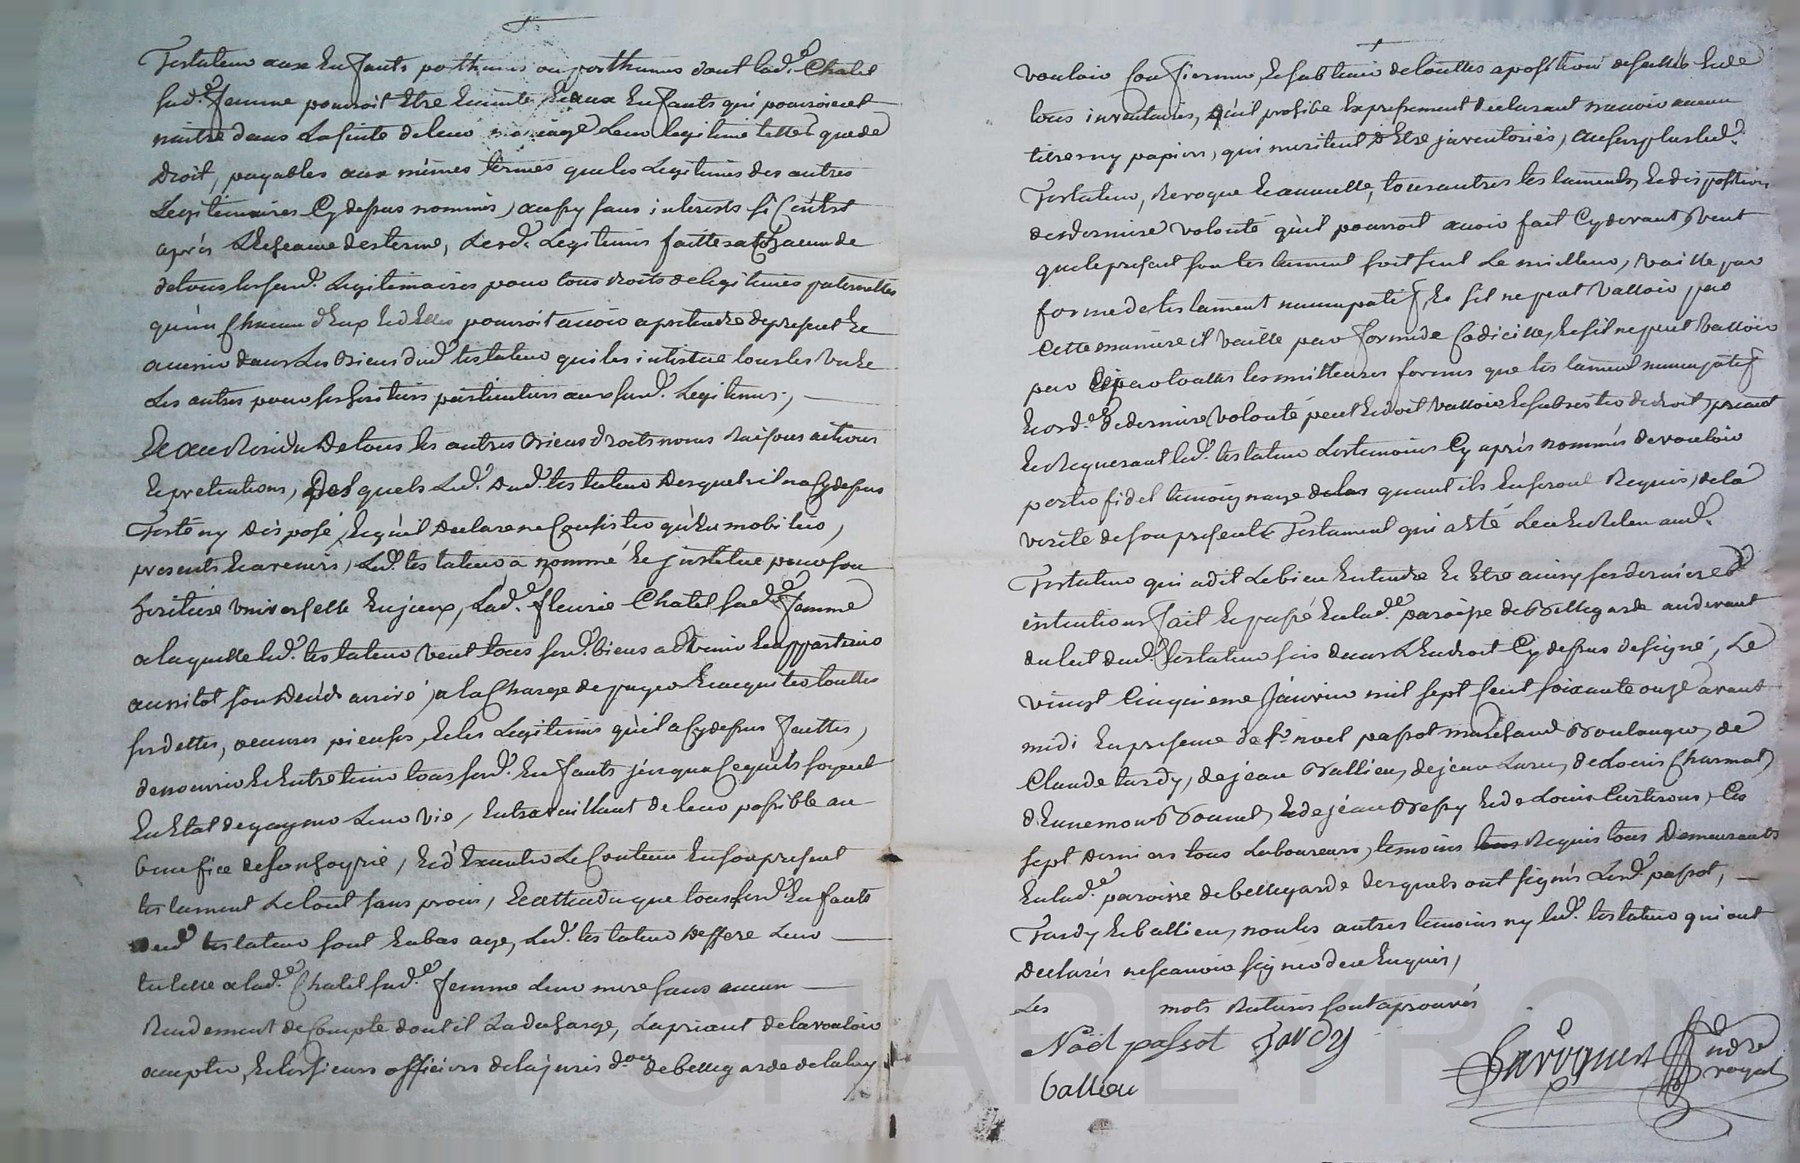 Testateur aux Enfants posthumes ou posthumes dont lad.e Chatel
sud.e femme pourroit Etre Enceinte, Et aux Enfants qui pourroient
naitre dans La suitte de leur mariage Leur legitime telle que de
Droit, payables aux mêmes termes que les Legitimes des autres
Legitimaires Cy dessus nommés, aussy sans interests si Ce n'est
après L'Echeance des terme, Lesd. Legitimes faittes a Chacun de
de tous lessusd. Legitimaires pour tous droits de legitimes paternelles
qu'un Chacun d'Eux Et d'Elles pourroit avoir a pretendre de present Et
avenir dans Les Biens dud. testateur qui les institue tous les uns Et
Les autres pour ses heritiers particuliers aux susd. Legitimes,
Et au Residu De tous les autres Biens droits noms Raisons actions
Et pretentions, Des quels Led. dud. testateur Desquels il n'a Cy dessus
Testé ny Disposé, Et qu'il Declare ne Consister qu'En mobilier,
presents Et avenirs, Led. testateur a nommé Et institue pour son
heritiere Universelle Enjeux, Lad.e fleurie Chatel sad.e femme
a laquelle led. testateur veut tous sesd. biens advenir Et appartenir
aussitot son Decès arrivé, a la Charge de payer Et acquitter touttes
ses dettes, oeuvres pieuses, Et les Legitimes qu'il a Cy dessus faittes,
de nourrir Et Entretenir tous sesd. Enfants jusqua Ce qu'ils soyent
En Etat de gagner Leur vie, En travaillant de leur possible au
benefice de son hoyrie, Et d'Executer Le Contenu En son present
testament Le tout sans procès, Et attendu que tous sesd. Enfants
dud. testateur sont En bas age, Led. testateur Deffere Leur
tutelle a lad.e Chatel sad.e femme Leur mere sans aucun
Rendement de Compte dont il La decharge, La priant de la vouloir
accepter, Et les sieurs officiers de la jurisd.on de bellegarde de la luy
vouloir Confirmer, Et s'abstenir de touttes aposition de scellés Et de
tous inventaires, qu'il prohibe Expressement declarant n'avoir aucun
titres ny papiers, qui meritent d'Etre inventoriés, au surplus led.
Testateur, Revoque Et annulle, tous autres testaments, Et dispositions
de derniere volonté qu'il pourroit avoir fait Cy devant, Veut
que le present son testament soit seul Le meilleur, Vaille par
forme de testament nuncupatif, Et s'il ne peut Valloir par
Cette maniere il Vaille par forme de Codicille, Et s'il ne peut Valloir
par touttes les meilleures formes que testament nuncupatif
Et ord.e de derniere Volonté peut Et doit Valloir Et subsister de droit, priant
Et Requerant led. testateur Les temoins Cy après nommés de vouloir
porter fidel temoignage quant ils En seront Requis, de la
verité de son present Testament qui a Eté Leu Et Releu aud.
Testateur qui a dit Le bien Entendre Et Etre ainsy ses dernieres
intentions fait Et passé En lad.e paroisse de Bellegarde au devant
du lit dud. Testateur sis dans L'Endroit Cy dessus designé, Le
vingt Cinquieme Janvier mil sept Cent soixante onze avant
midi En presence de s.r noel passot marchand Boulanger, de
Claude tardy, de jean Vallieu, de jean Luru, de Louis Charmat,
d'Ennemon Brunet, Et de jean Et de Louis Ces
sept derniers tous Laboureurs, temoins Requis tous Demeurants
En lad.e paroisse de bellegarde desquels ont signés Lesd. passot,
Tardy Et ballieu, non les autres temoins ny led. testateur qui ont
Declarés ne scavoir signer de ce Enquis,
Les mots Raturés sont aprouvés
Noël passot Tardy
ballieu
ndre
royal
CHAREYRON